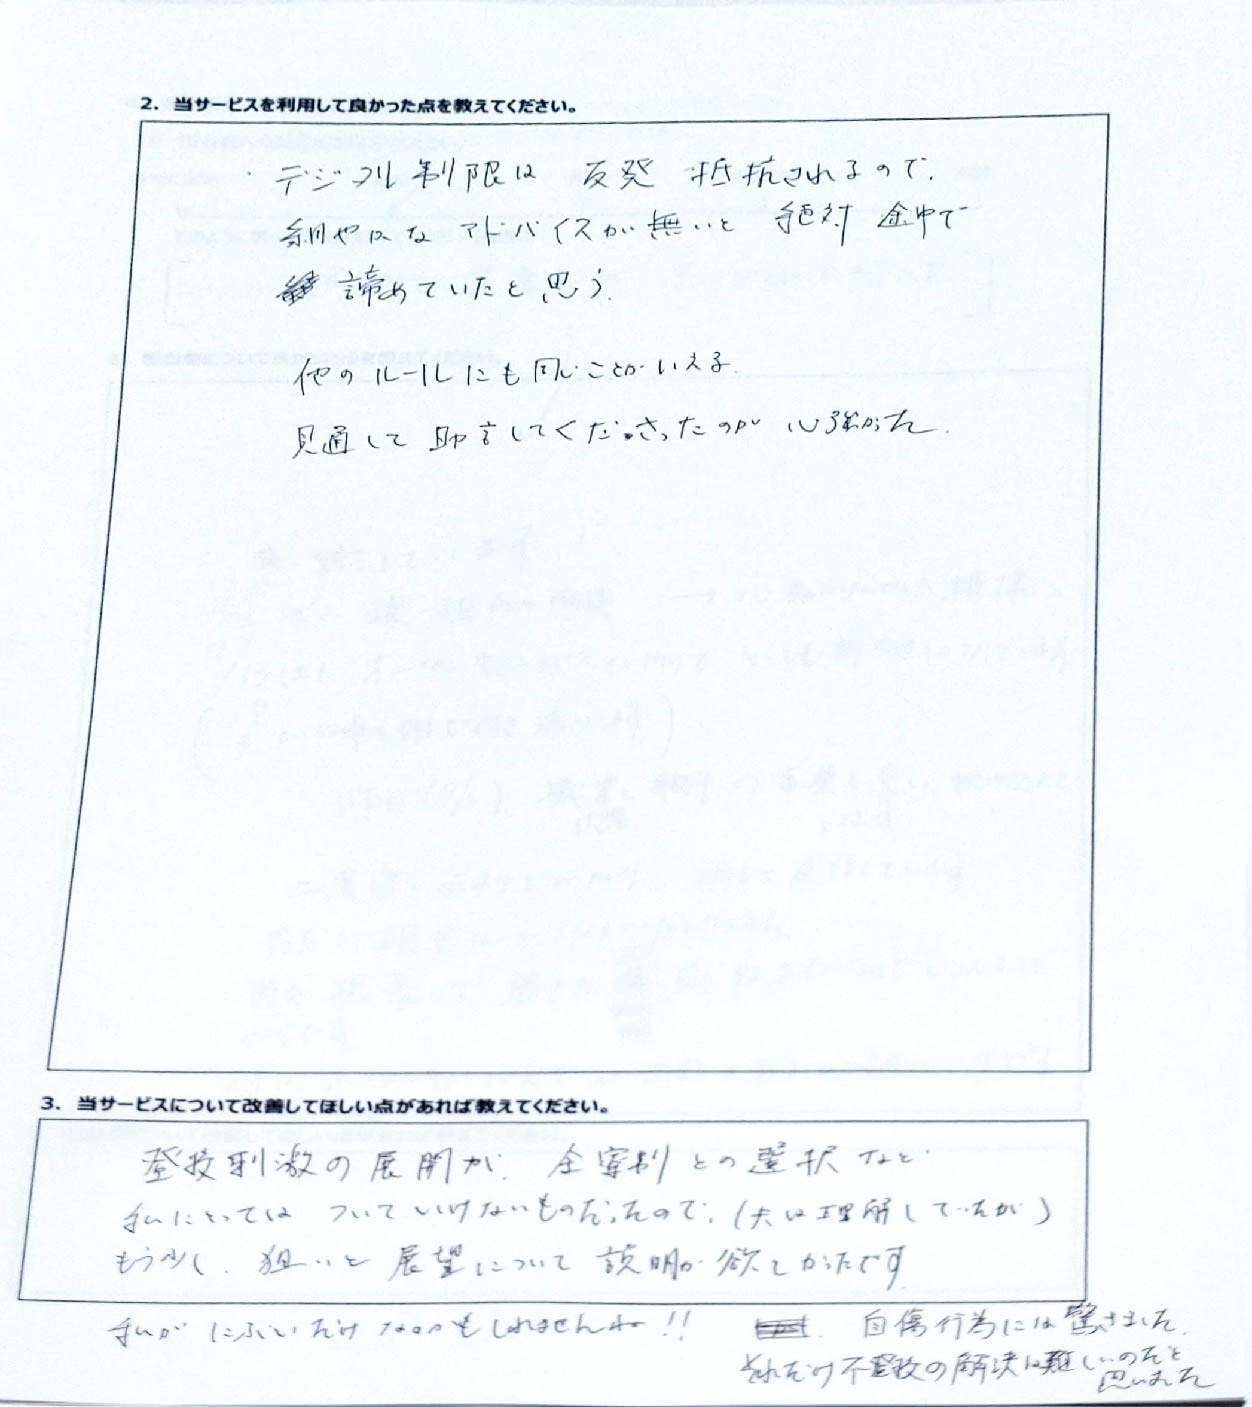 2. 当サービスを利用して良かった点を教えてください。
・デジタル制限は 反発 抵抗されるので、
細やかなアドバイスが無いと 絶対 途中で
諦めていたと思う。
他のルールにも同じことがいえる。
見通して 助言してくださったのが 心強かった。
3. 当サービスについて改善してほしい点があれば教えてください。
登校刺激の展開が、全寮制との選択など
私にとっては ついていけないものだったので、(夫は理解していたが)
もう少し、狙いと 展望について 説明が欲しかったです
私が にぶいだけ なのかもしれませんね!!
自傷行為には驚きました。
それだけ不登校の解決は難しいのだと
思いました